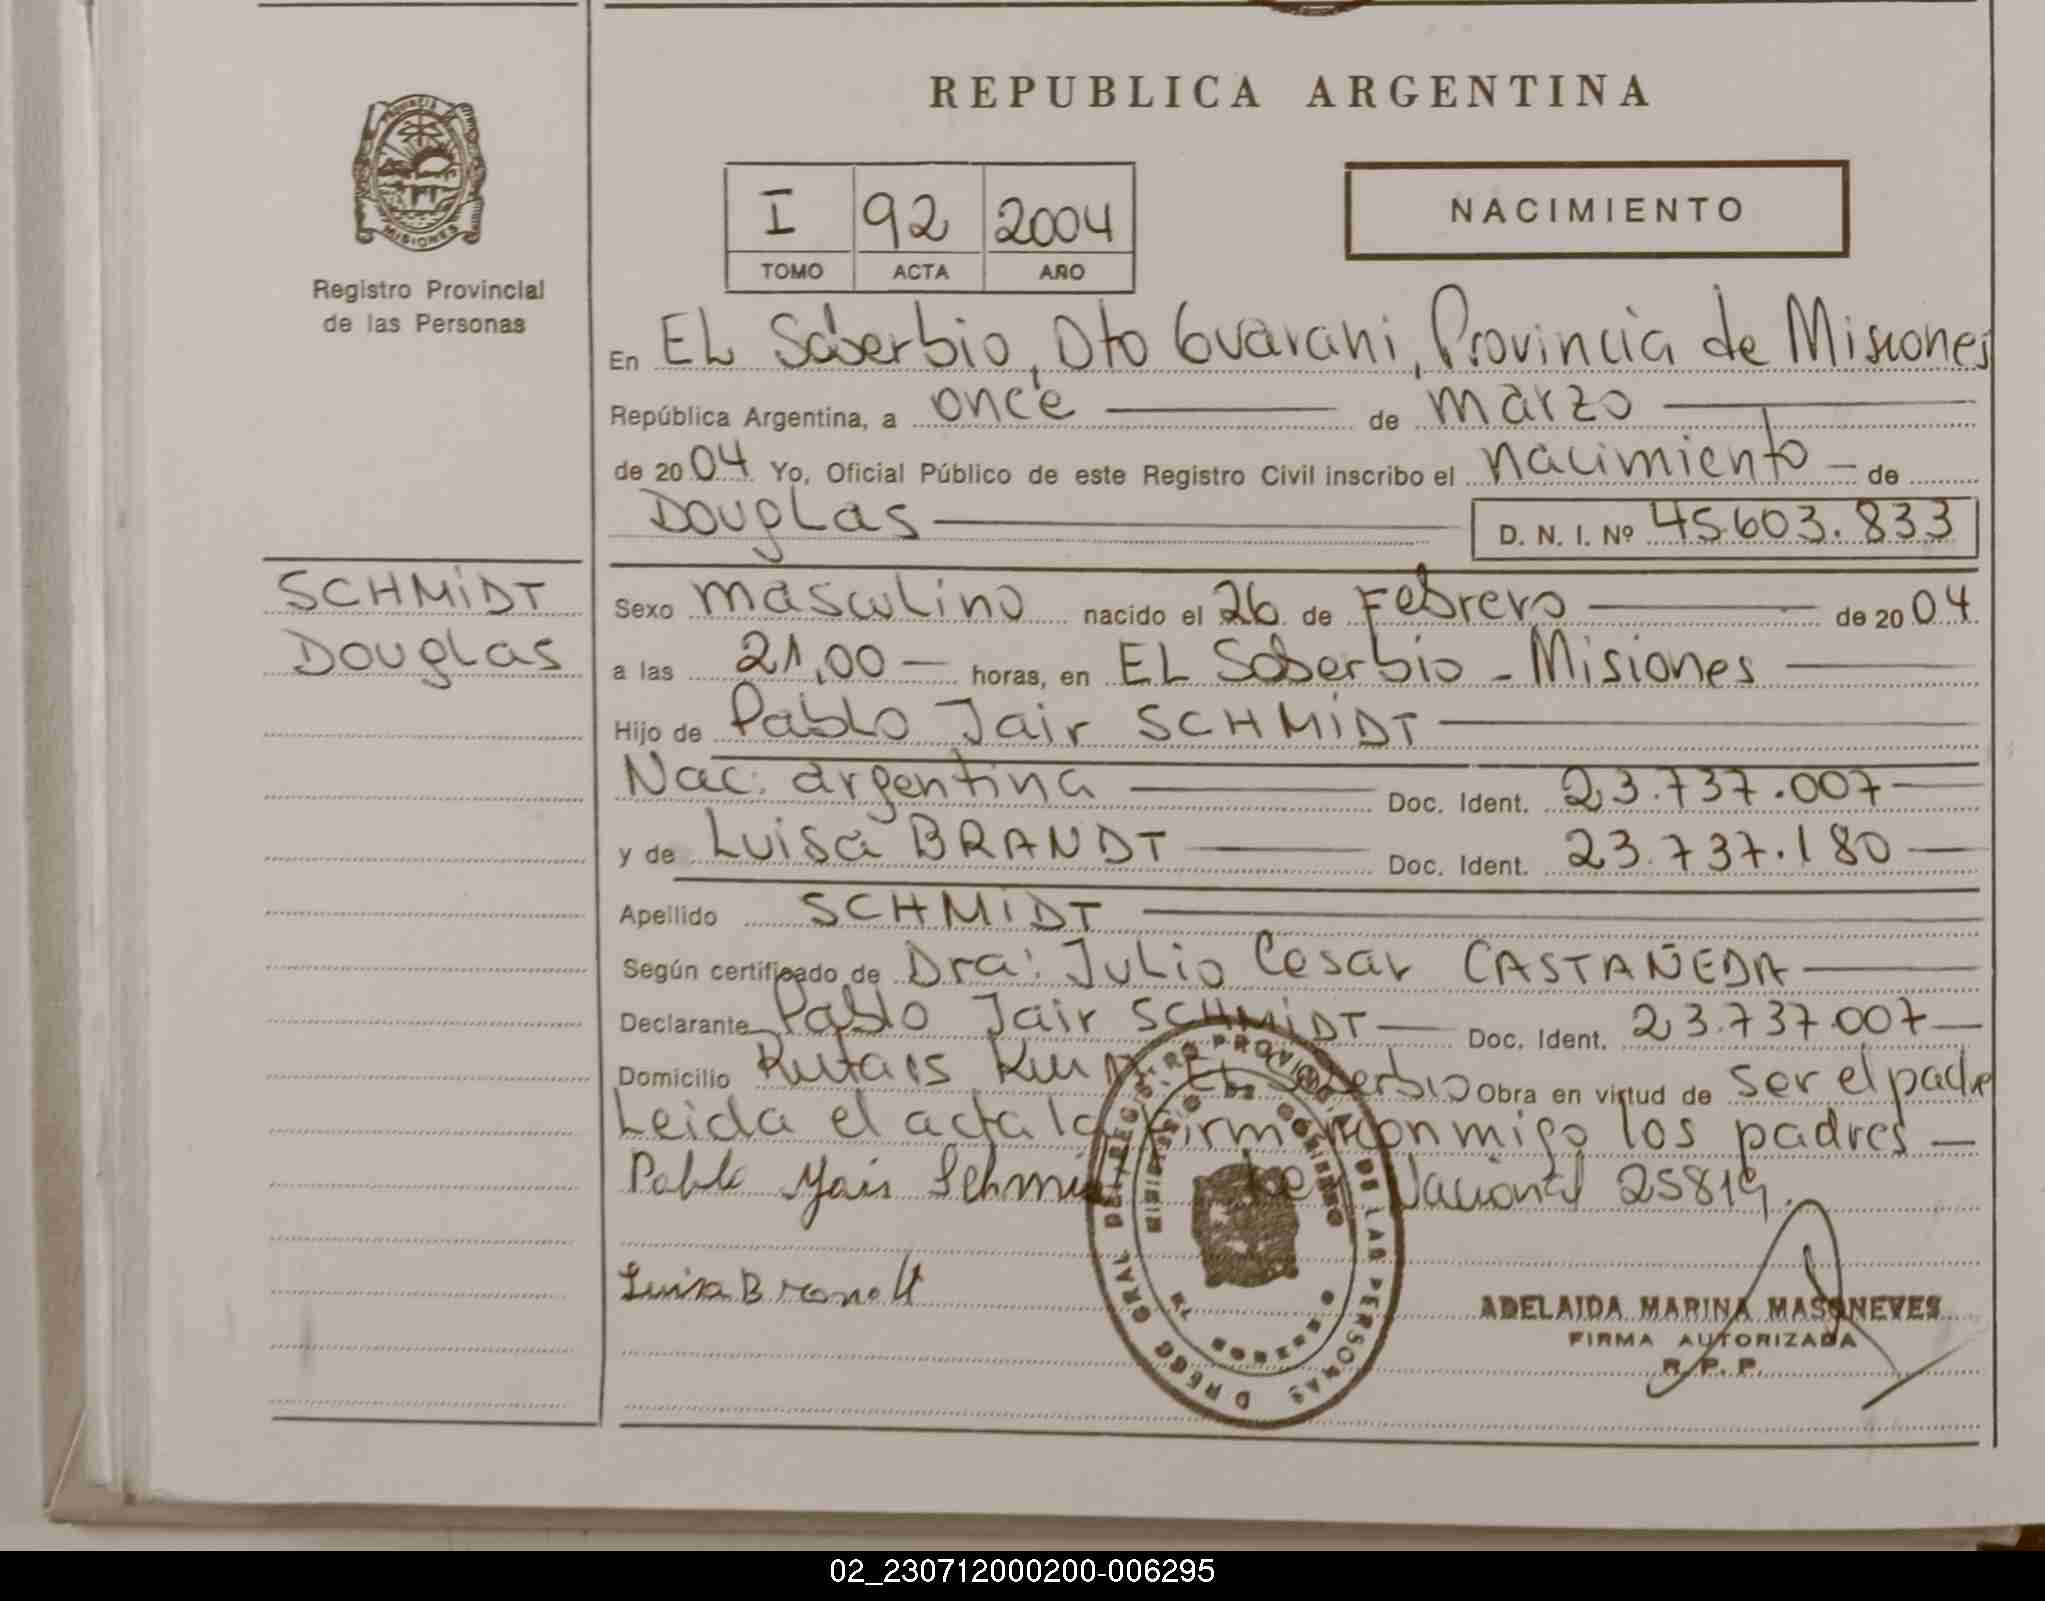 REPUBLICA ARGENTINA
PROVINCIA
MISIONES
Registro Provincial
de las Personas
I 92 2004
TOMO ACTA AÑO
NACIMIENTO
En EL Soberbio, Dto Guarani, Provincia de Misiones
República Argentina, a once de marzo
de 2004 Yo, Oficial Público de este Registro Civil inscribo el nacimiento de
Douglas
D. N. I. Nº 45.603.833
SCHMiDT
Douglas
Sexo masculino nacido el 26 de Febrero de 2004
a las 21,00 horas, en EL Soberbio - Misiones
Hijo de Pablo Jair SCHMiDT
Nac: argentina Doc. Ident. 23.737.007
y de Luisa BRANDT Doc. Ident. 23.737.180
Apellido SCHMiDT
Según certificado de Dra: Julio Cesar CASTAÑEDA
Declarante Pablo Jair SCHMiDT Doc. Ident. 23.737.007
Domicilio EL Soberbio Obra en virtud de ser el padre
Leida el acta la firman conmigo los padres
Ley Nacional 25819.
Luisa Brandt
ADELAIDA MARINA MASONEVES
FIRMA AUTORIZADA
R. P. P.
02_230712000200-006295